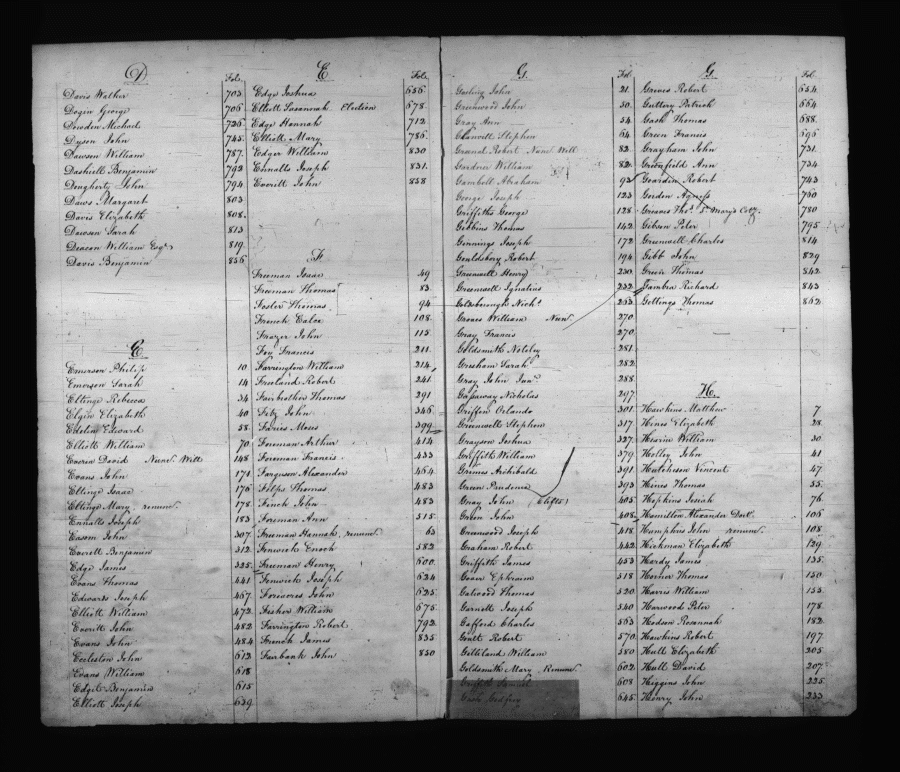 D
Fol.
Davis Walter 703
Dogin George 706
Dowden Michael 726
Dyson John 745
Dawson William 787
Dashiell Benjamin 792
Dougherty John 794
Daws Margaret 803
Davis Elizabeth 808
Dawson Sarah 813
Deacon William Esqr 819
Davis Benjamin 856
E
Emerson Philip 10
Emerson Sarah 14
Eltinge Rebecca 34
Elgin Elizabeth 40
Edelin Edward 58
Elliott William 70
Evans David Nunc. Will 148
Evans John 171
Eltinge Isaac 176
Eltinge Mary renunc. 178
Ennalls Joseph 183
Eason John 307
Everett Benjamin 312
Edge James 325
Evans Thomas 441
Edwards Joseph 467
Elliott William 472
Everitt John 482
Evans John 484
Eccleston John 612
Evans William 618
Edgil Benjamin 615
Elliott Joseph 639
E
Fol.
Edge Joshua 656
Elliott Susannah Election 678
Edge Hannah 712
Elliott Mary 786
Edger William 830
Ennalls Joseph 831
Everitt John 858
F
Freeman Isaac 49
Freeman Thomas 83
Foster Thomas 94
French 108
Frazer John 115
Foy Francis 211
Farrington William 214
Freeland Robert 241
Fairbrother Thomas 291
Fitz John 346
Faries Moses 399
Foreman Arthur 414
Foreman Francis 433
Ferguson Alexander 464
Felps Thomas 483
Finch John 483
Foreman Ann 515
Freeman Hannah renunc. 63
Fenwick Enoch 582
Freeman Henry 600
Fenwick Joseph 624
Foreacres John 625
Fisher William 675
Farrington Robert 792
French James 835
Fairbank John 850
G
Fol.
Gosling John 21
Greenwood John 50
Gray Ann 54
Stephen 64
Robert Nunc. Will 82
Gordon William 82
Gambell Abraham 93
George Joseph 123
Griffiths George 128
Gibbins Thomas 142
Gennings Joseph 172
Gouldsbery Robert 194
Greenwell Henry 230
Greenwell Ignatius 232
Goldsborough Nichs 263
Groves William Nunc. 270
Gray Francis 270
Goldsmith Notley 281
Gresham Sarah 282
Gray John Junr 288
Gassaway Nicholas 297
Griffen Orlando 301
Greenwell Stephen 317
Grayson Joshua 327
Griffith William 379
Grimes Archibald 391
Green Prudence 393
Gray John 405
Green John 408
Greenwood Joseph 418
Graham Robert 442
Griffith James 453
Goar Ephraim 518
Gatwood Thomas 520
Garnett Joseph 540
Gafford Charles 563
Gnatt Robert 570
Gilliland William 580
Goldsmith Mary Renunc. 602
Griffith Samuel 608
Godfrey 645
G
Fol.
Groves Robert 654
Guttery Patrick 664
Gash Thomas 688
Green Francis 695
Grayham John 731
Greenfield Ann 734
Geardin Robert 743
Gorden Agness 760
Greaves Thos. St. Mary's Coty. 780
Gibson Peter 795
Greenwell Charles 814
Gibb John 829
Green Thomas 842
Gambra Richard 843
Gittings Thomas 862
H
Hawkins Matthew 7
Hines Elizabeth 28
William 30
Holley John 41
Hutcheson Vincent 47
Hines Thomas 55
Hopkins Josiah 76
Hamilton Alexander Doct. 106
Humphris John renunc. 108
Hickman Elizabeth 129
Hardy James 135
Horner Thomas 150
Harris William 153
Harwood Peter 178
Hodson Rosannah 182
Hawkins Robert 197
Hull Elizabeth 205
Hull David 207
Higgins John 225
Henry John 233